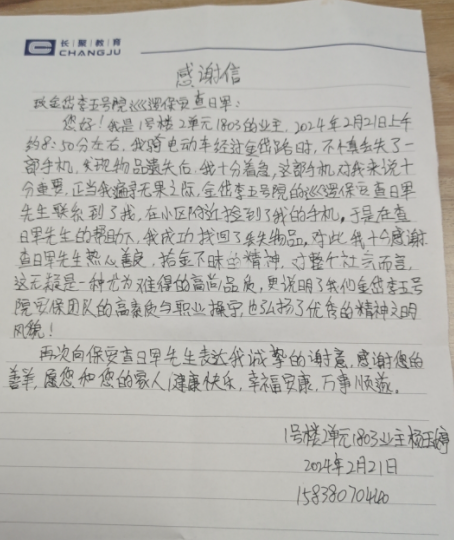 长|聚|教|育
CHANGJU
感谢信
致金岱李五号院巡逻保安查日军:
您好!我是1号楼2单元1803的业主,2024年2月21日上午
约8:50分左右,我骑电动车经过金岱路时,不慎丢失了一
部手机,发现物品遗失后,我十分着急,这部手机对我来说十
分重要,正当我遍寻无果之际,金岱李五号院的巡逻保安查日军
先生联系到了我,在小区附近捡到了我的手机。于是在查
日军先生的帮助下,我成功找回了丢失物品。对此我十分感谢
查日军先生热心善良,拾金不昧的精神,对整个社会而言,
这无疑是一种尤为难得的高尚品质,更说明了我们金岱李五号
院安保团队的高素质与职业操守,也弘扬了优秀的精神文明
风貌!
再次向保安查日军先生表达我诚挚的谢意,感谢您的
善举,愿您和您的家人健康快乐,幸福安康,万事顺遂。
1号楼2单元1803业主杨玉婷
2024年2月21日
15838070440